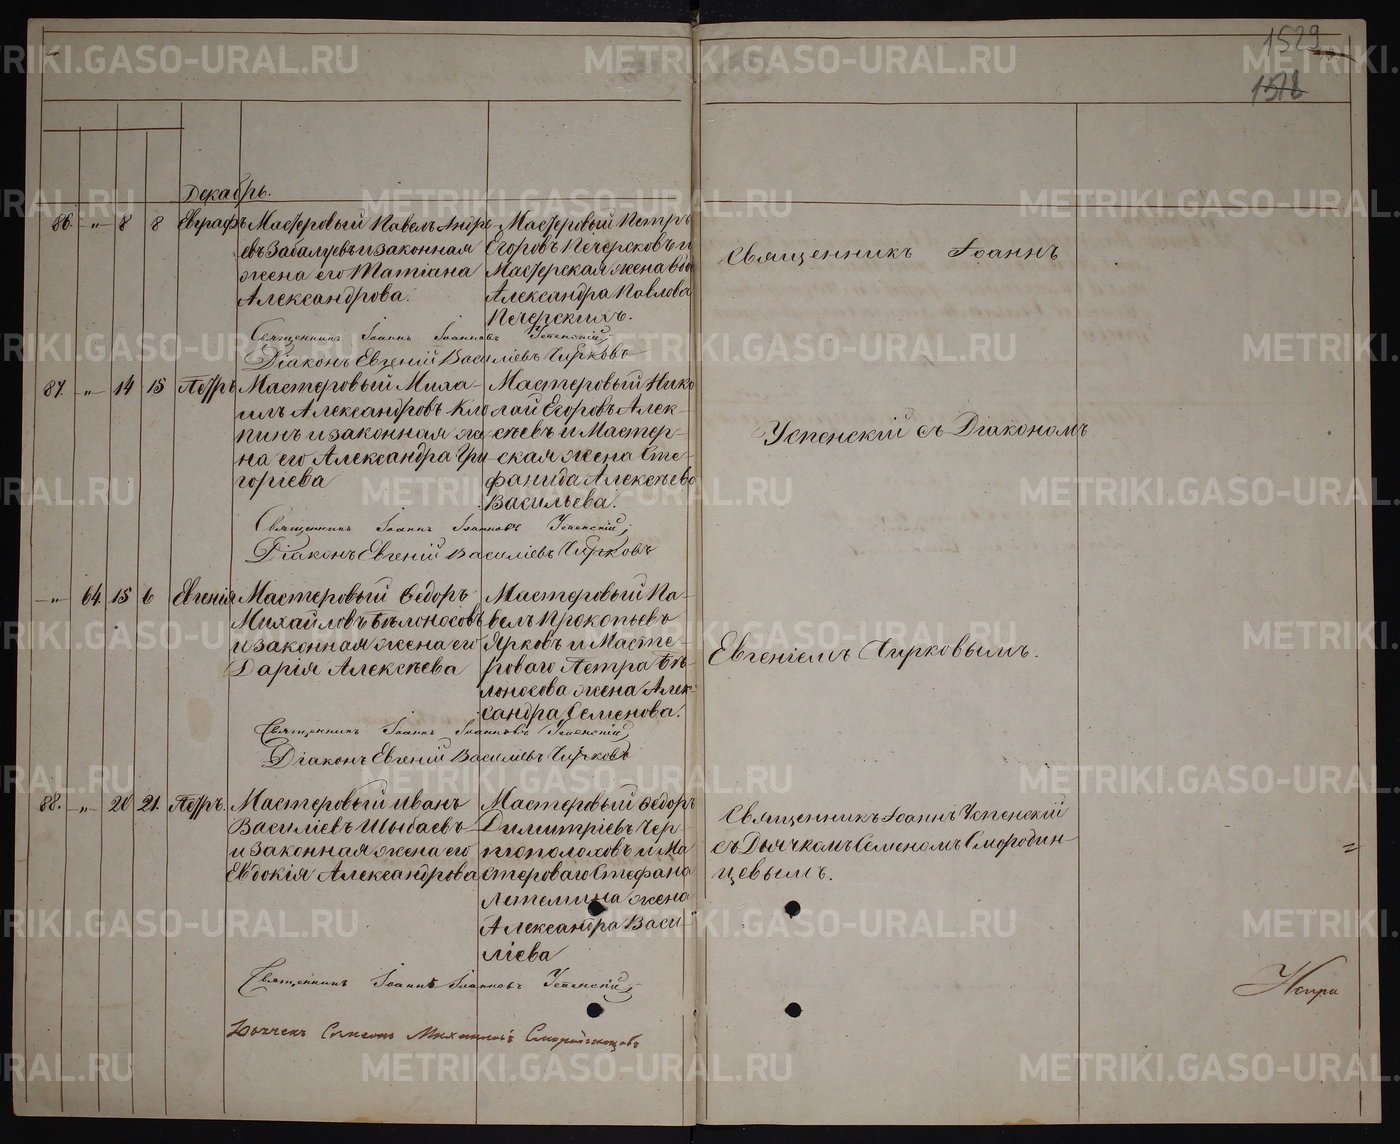 1529
1518
Декабрь.
86. „ 8 8 Евграфъ Мастеровый Павелъ Андре
евъ Забалуевъ и законная
жена его Татіана
Александрова.
Мастеровый Петръ
Егоровъ Печерсковъ и
Мастерская жена вдо
Александра Павлова
Печерскихъ.
Священникъ Іоаннъ Іоанновъ Успенскій;
Діаконъ Евгеній Василіевъ Чирковъ
Священникъ Іоаннъ
87. „ 14 15 Петръ Мастеровый Миха-
илъ Александровъ Кло
пинъ и законная же
на его Александра Гри
горіева
Мастеровый Нико
лай Егоровъ Алек-
сѣевъ и Мастер-
ская жена Сте-
фанида Алексѣева
Васильева.
Священникъ Іоаннъ Іоанновъ Успенскій;
Діаконъ Евгеній Василіевъ Чирковъ
Успенскій съ Діакономъ
„ 64 15 6 Евгенія Мастеровый Ѳедоръ
Михайловъ Бѣлоносовъ
и законная жена его
Дарія Алексѣева
Мастеровый Па-
велъ Прокопьевъ
Ярковъ и Масте-
роваго Петра Бѣ-
лоносова жена Алек-
сандра Семенова.
Священникъ Іоаннъ Іоанновъ Успенскій;
Діаконъ Евгеній Василіевъ Чирковъ
Евгеніемъ Чирковымъ.
88. „ 20 21. Петръ. Мастеровый Иванъ
Василіевъ Шыбаевъ
и законная жена его
Евдокія Александрова
Мастеровый Ѳедоръ
Димитріевъ Чер-
тополоховъ и Ма
стероваго Стефана
Летемина жена
Александра Васи-
ліева
Священникъ Іоаннъ Іоанновъ Успенскій;
Дьячекъ Симеонъ Смородинцовъ
Священникъ Іоаннъ Успенскій
съ Дьячкомъ Семеномъ Смородин-
цевымъ.
METRIKI.GASO-URAL.RU